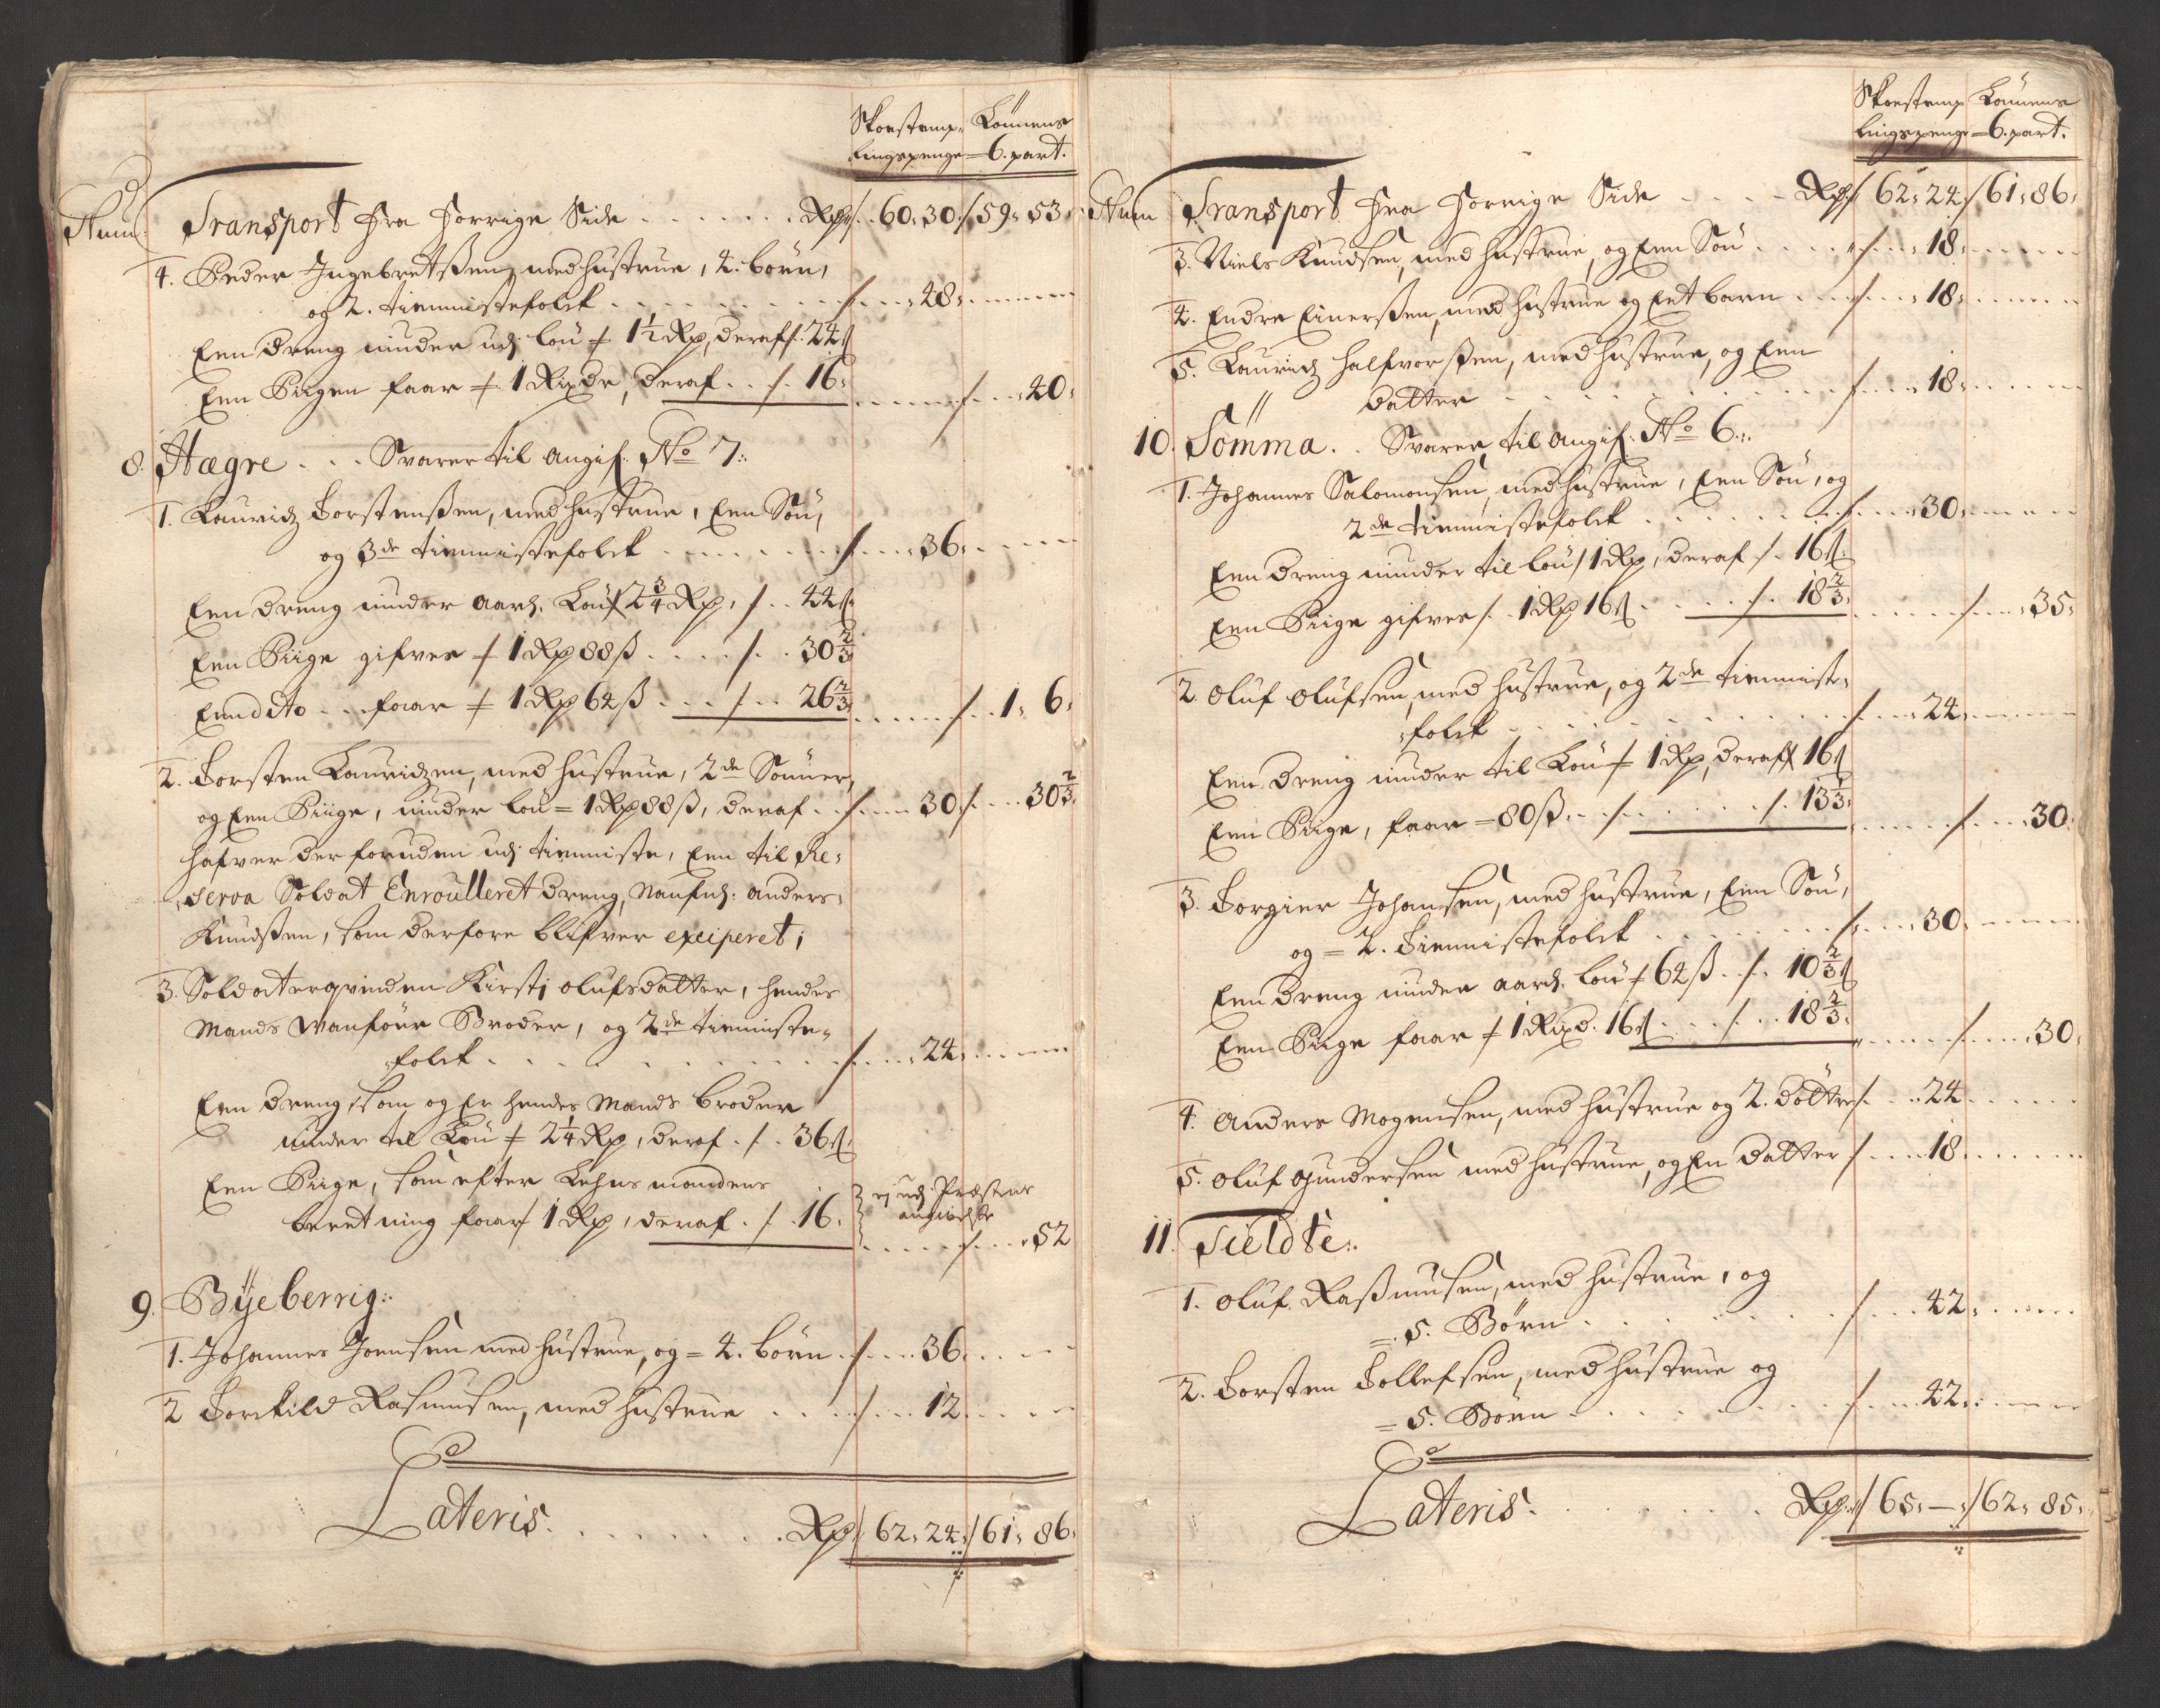 Skoestemp- Lönnens
lingspenge 6. part.
Num: Transport fra forrige Side . . . . . . Rdr 60. 30. / 59. 53.
4. Peder Ingebretßen, med hustrue, 4. börn,
og 2. tiennistefolck . . . . . . 48.
Een dreng niuder udj lön 1½ Rdr, deraf 24 ß
Een Piigen faar 1 Rixdr, deraf . . 16. . . . . 40.
8. Hægre . . . Svarer til Angif. No 7.
1. Lauridz Torstenßen, med hustrue, Een Sön,
og 3de tiennistefolck . . . . . . 36.
Een dreng niuder aarl. Lön 2¾ Rdr, . . 44 ß.
Een Piige gifves 1 Rdr 88 ß . . . . 30⅔
Een dito . . . faar 1 Rdr 64 ß . . . 26⅔ . . . . 1. 6.
2. Torsten Lauridzen, med hustrue, 2de Sönner,
og Een Piige, niuder lön = 1 Rdr 88 ß, deraf . . 30. . . . 30⅔.
hafver der foruden udj tienniste, Een til Re-
serva Soldat Enroulleret dreng, Naufnl: Anders
Knudßen, som derfore blifver exciperet;
3. Soldaterqvinden Kirstj olufsdatter, hendes
Mands Vanföre Broder, og 2de tienniste-
folck . . . . . . 24.
Een dreng, som og Er hendes Mands broder
niuder til Lön 2¼ Rdr, deraf . . 36 ß.
Een Piige, som efter Lehnsmandens ej udj Præstens
beretning faar 1 Rdr, deraf . . 16. angivelse
. . . . 52
9. Byeberrig.
1. Johannes Joensen med hustrue, og = 4. börn . . . 36.
2 Torkild Rasmusen, med hustrue . . . . 12.
Lateris. . . . . . . Rdr 62. 24. / 61. 86.
Skoestemp Lönnens
lingspenge 6. part.
Num Transport fra forrige Side . . . . Rdr 62. 24. / 61. 86.
3. Niels Knudsen, med hustrue, og Een Sön . . . . 18.
4. Endre Einerßen, med hustrue og Eet barn . . . 18.
5. Lauridz Halfvorßen, med hustrue, og Een
datter . . . . . . 18.
10. Sömma. . Svarer til Angif. No 6.
1. Johannes Salomonsen, med hustrue, Een Sön, og
2de tiennistefolck . . . . . . 30.
Een dreng niuder til lön 1 Rdr, deraf . 16 ß.
Een Piige gifves . 1 Rdr 16 ß . . . . 18⅔ . . . . 35.
2. Oluf Olufsen, med hustrue, og 2de tienniste-
folck . . . . . . 24.
Een dreng niuder til Lön 1 Rdr, deraf 16 ß
Een Piige, faar = 80 ß. . . . . . 13⅓. . . . . 30.
3. Torgier Johansen, med hustrue, Een Sön,
og = 2. Tiennistefolck . . . . . . 30.
Een dreng niuder aarl. lön 64 ß . . 10⅔ ß
Een Piige faar 1 Rixd. 16 ß . . . . 18⅔. . . . . 30.
4. Anders Mogensen, med hustrue og 2. döttre . . . 24
5. Oluf Gundersen med hustrue, og En datter . . . 18
11. Tieldte.
1. Oluf Raßmusen, med hustrue, og
= 5. Börn . . . . . . 42.
2. Torsten Tollefsen, med hustrue og
= 5. Börn . . . . . . 42.
Lateris. . . . . . . Rdr 65. — / 62. 85.